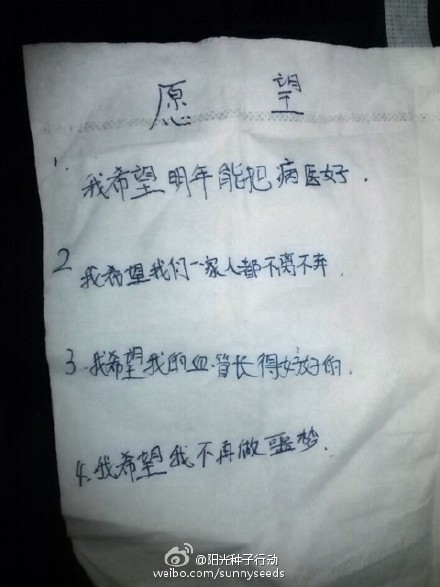 愿望
1.我希望明年能把病医好.
2我希望我们一家人都不离不弃.
3.我希望我的血管长得好好的.
4.我希望我不再做噩梦.
@阳光种子行动
weibo.com/sunnyseeds